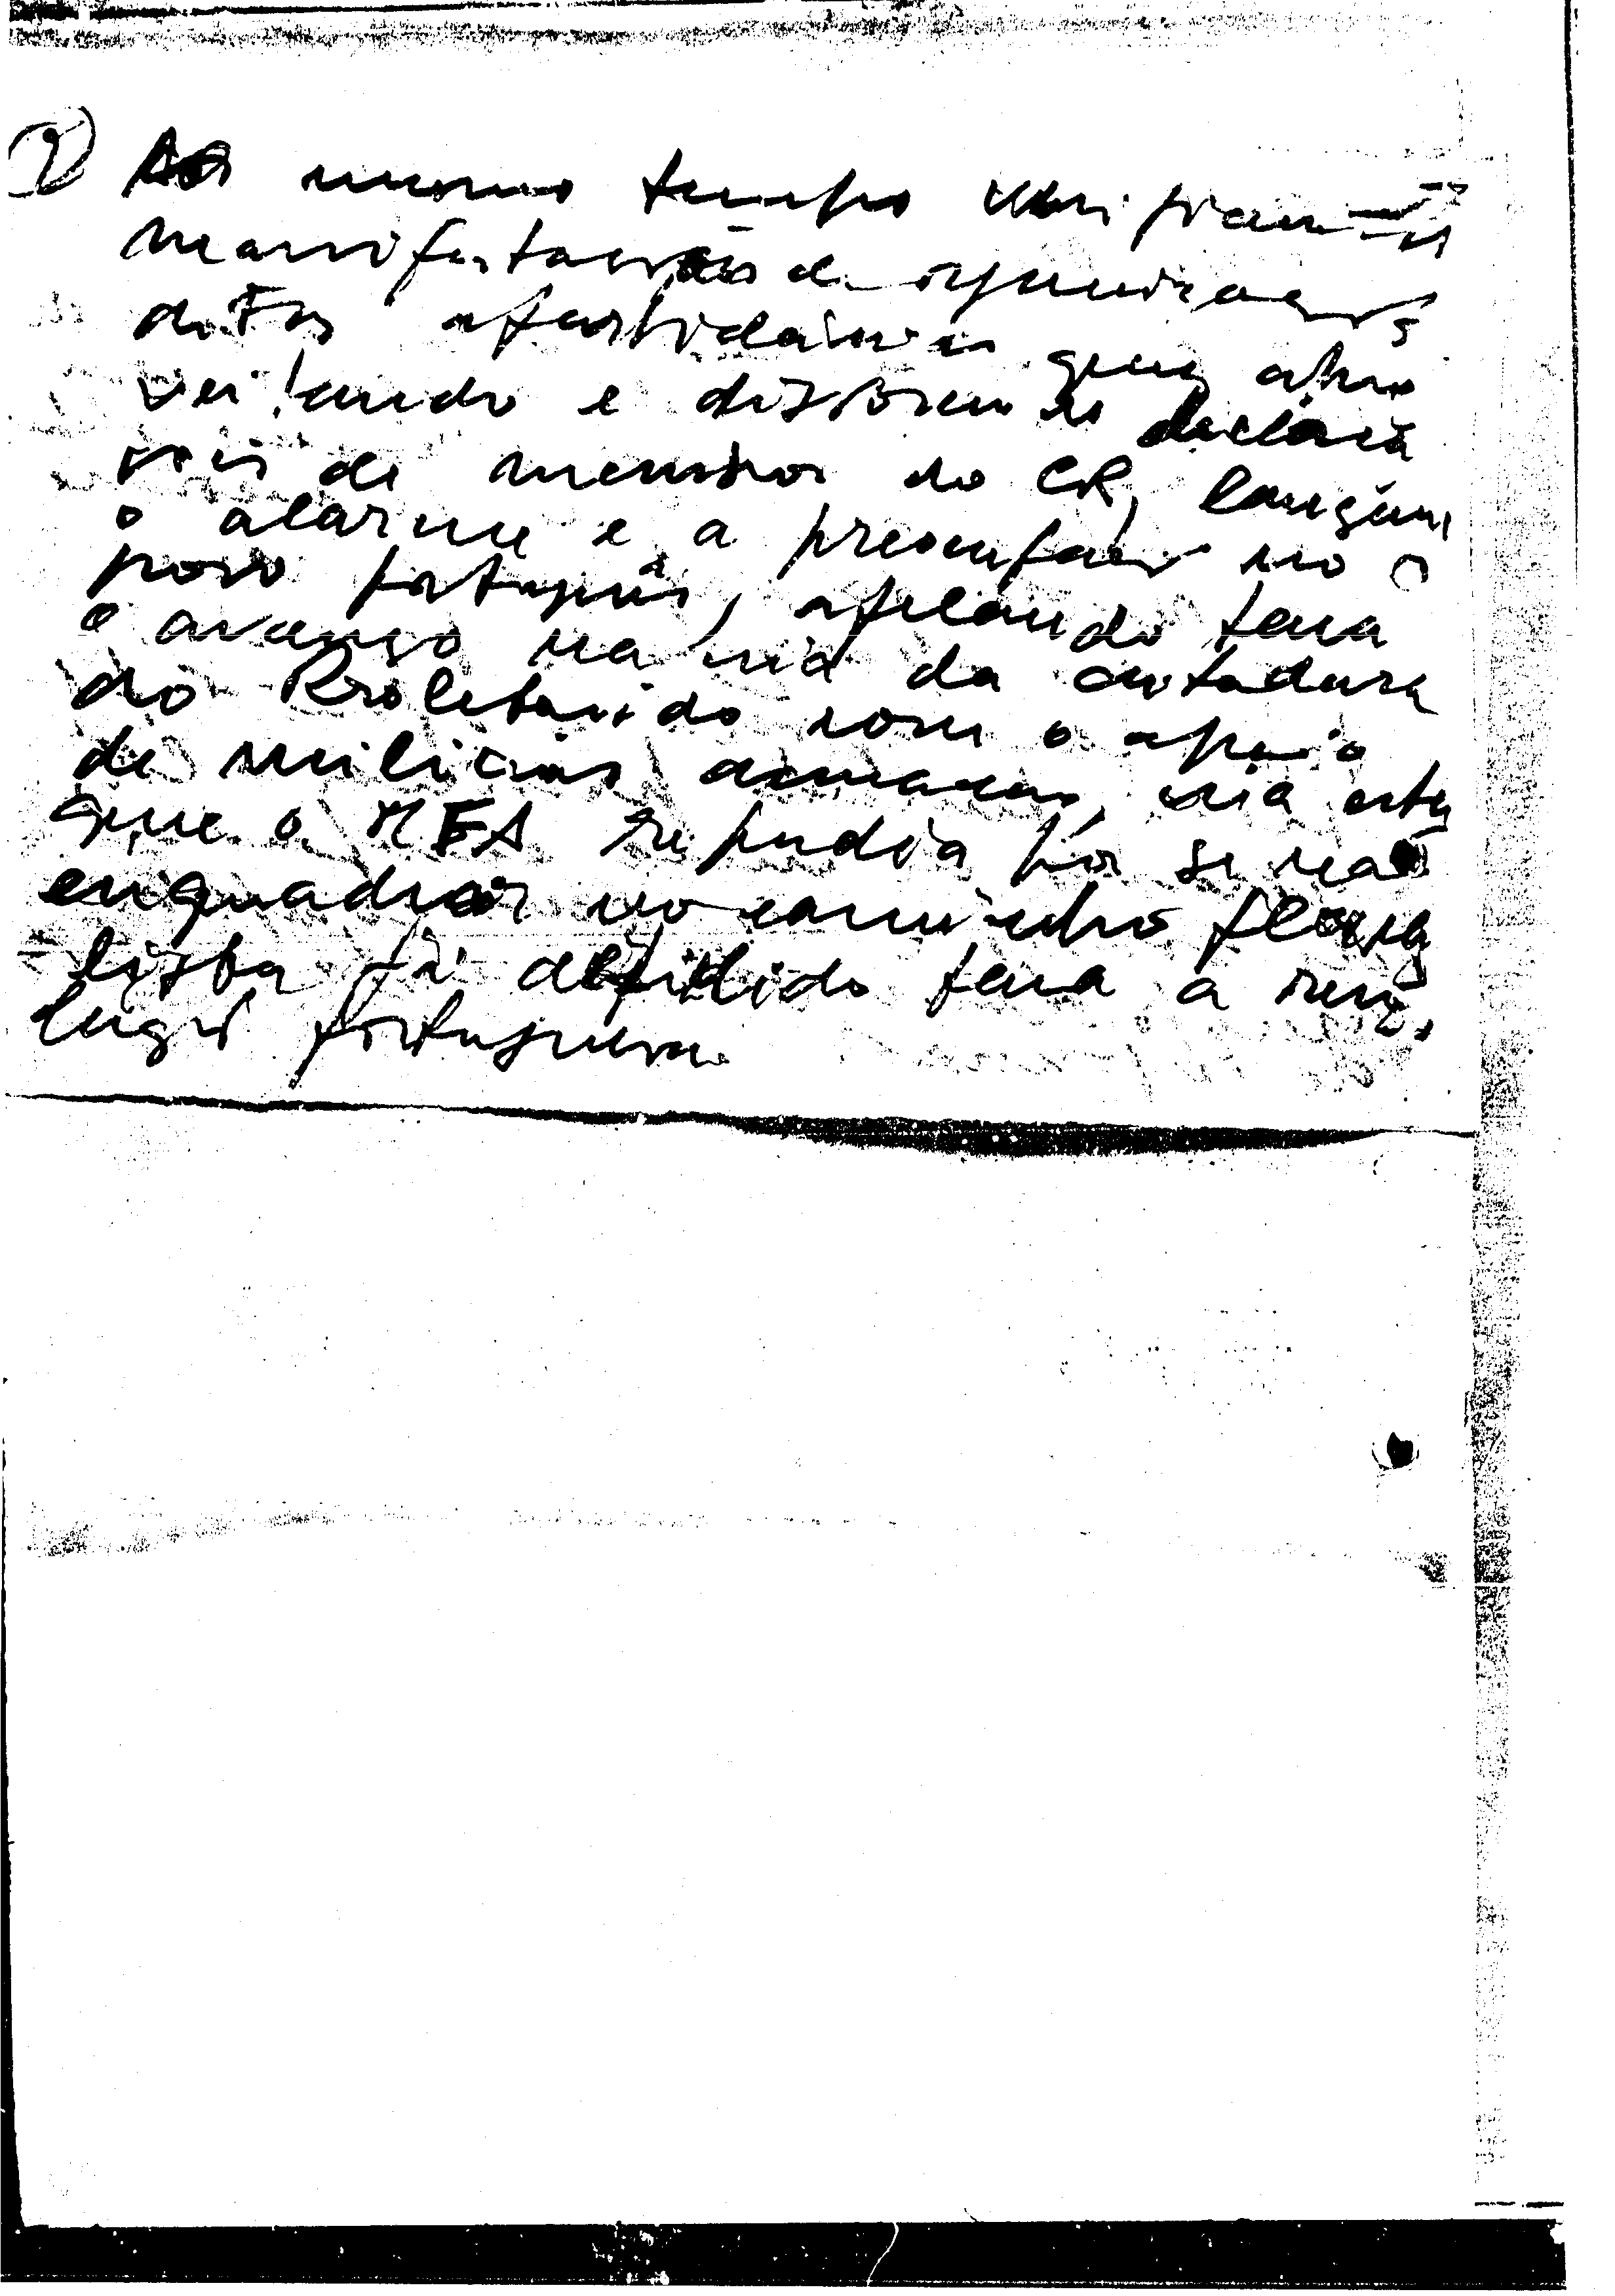 2) Ao mesmo tempo verificam-se
manifestações de organizações
ditas apartidárias que apro
veitando e distorcendo declara
ções de membros do CR, lançam
o alarme e a preocupação no
povo português, apelando para
o avanço na via da ditadura
do Proletariado com o apoio
de milicias armadas, via esta
que o MFA repudia por se não
enquadrar no caminho plura
lista já definido para a revo
lução portuguesa.